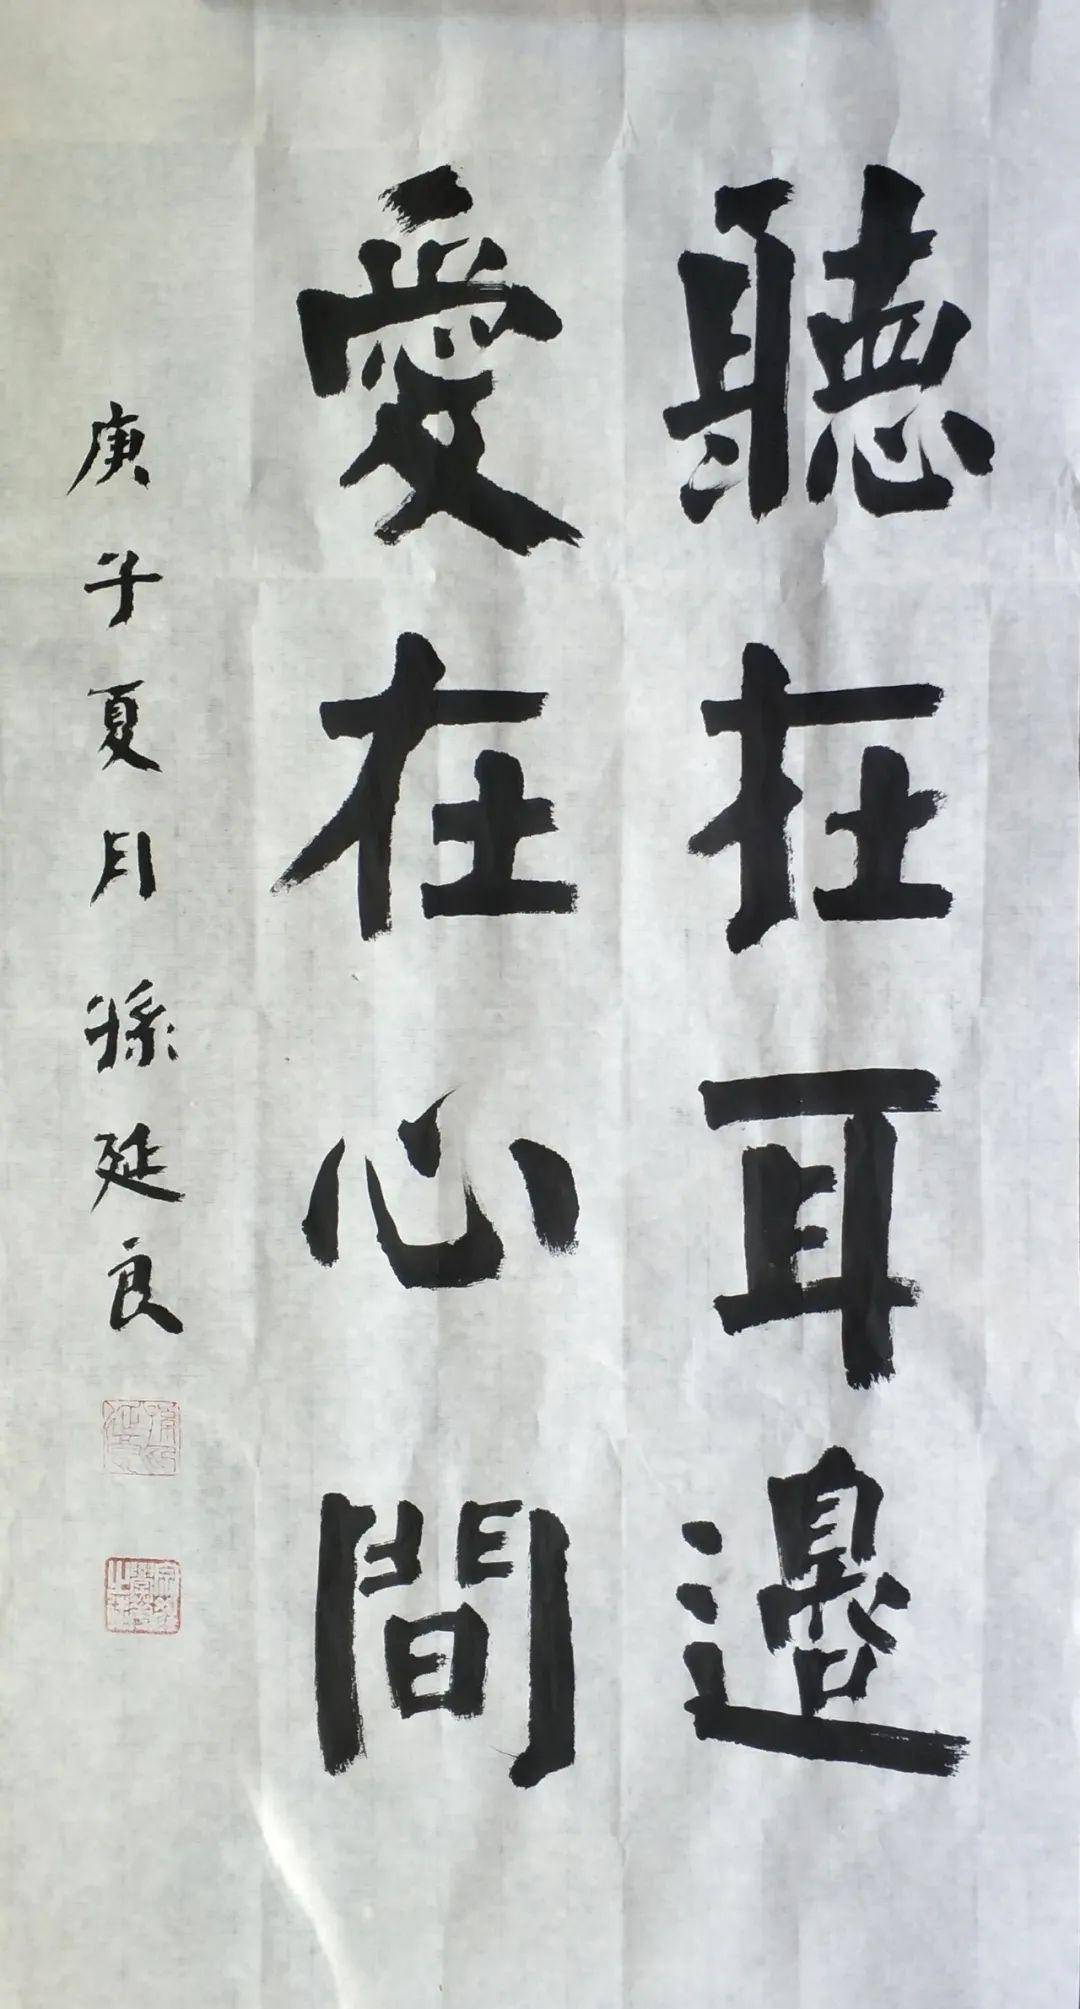 聽在耳邊
愛在心間
庚子夏月孫延良